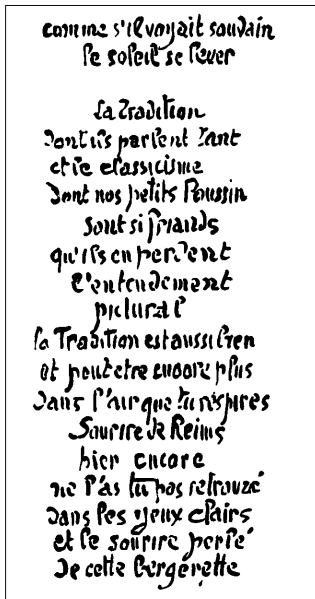 comme s'il voyait soudain
le soleil se lever
La Tradition
dont ils parlent tant
et le classicisme
dont nos petits Poussin
sont si friands
qu'ils en perdent
l'entendement
pictural
la Tradition est aussi bien
et peut etre encore plus
dans l'air que tu respires
Sourire de Reims
hier encore
ne l'as tu pas retrouvé
dans les yeux clairs
et le sourire perlé
de cette bergerette